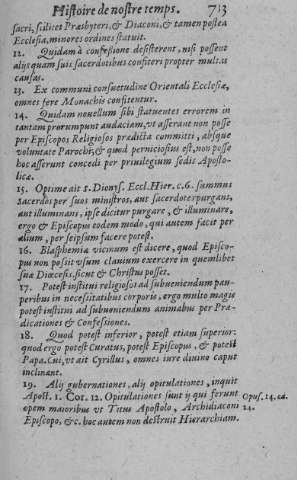 Histoire de nostre temps. 713
sacri, scilicet Præsbyteri, & Diaconi, & tamen postea
Ecclesia, minores ordines statuit.
12. Quidam à confeßione desisterent, nisi possent
alijs quam suis sacerdotibus confiteri propter multas
causas.
13. Ex communi consuetudine Orientali Ecclesiæ,
omnes fere Monachis confitentur.
14. Quidam nouellum sibi statuentes errorem in
tantam prorumpunt audaciam, vt asserant non posse
per Episcopos Religiosos prædicta committi, absque
voluntate Parochi, & quod perniciosius est, non posse
hoc asserunt concedi per priuilegium sedis Aposto-
licæ.
15. Optime ait S. Dionys. Eccl. Hier. c. 6. summus
sacerdos per suos ministros, aut sacerdotes purgans,
aut illuminans, ipse dicitur purgare, & illuminare,
ergo & Episcopus eodem modo, qui autem facit per
alium, per seipsum facere potest.
16. Blasphemia vicinum est dicere, quod Episco-
pus non possit vsum clauium exercere in quemlibet
suæ Diœcesis, sicut & Christus posset.
17. Potest institui religio ad subueniendum pau-
peribus in necessitatibus corporis, ergo multo magis
potest institui ad subueniendum animabus per Præ-
dicationes & Confessiones.
18. Quod potest inferior, potest etiam superior:
quod ergo potest Curatus, potest Episcopus, & potest
Papa. Cui, vt ait Cyrillus, omnes iure diuino caput
inclinant.
19. Alij gubernationes, alij opitulationes, inquit
Apost. 1. Cor. 12. Opitulationes sunt ij qui ferunt Opus. 14. ca.
opem maioribus vt Titus Apostolo, Archidiaconi 24.
Episcopo, &c. hoc autem non destruit Hierarchiam.